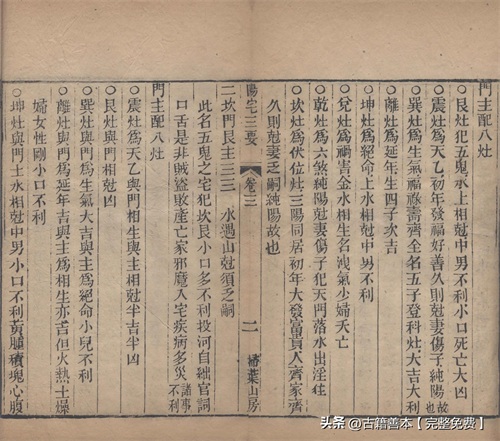 門主配八灶
○艮灶犯五鬼水土相尅中男不利小口死亡大凶
○震灶爲天乙初年發福好善久則尅妻傷子純陽故也
○巽灶爲生氣福祿壽齊全名五子登科灶大吉大利
○離灶爲延年生四子次吉
○坤灶爲絕命土水相尅中男不利
○兌灶爲禍害金水相生名洩氣少婦夭亡
○乾灶爲六煞純陽尅妻傷子犯天門落水出淫狂
○坎灶爲伏位灶三陽同居初年大發富貴人齊家齊
久則尅妻乏嗣純陽故也
陽宅三要 卷三 二 掃葉山房
二坎門艮主 水遇山尅須乏嗣
此名五鬼之宅犯坎艮小口多不利投河自縊官詞
口舌是非賊盜敗產亡家邪魔入宅疾病多災諸事不利
門主配八灶
○震灶爲天乙與門相生與主相尅半吉半凶
○艮灶與門相尅凶
○巽灶與門爲生氣大吉與主爲絕命小兒不利
○離灶與門爲延年吉與主爲相生亦吉但火熱土燥
婦女性剛小口不利
○坤灶與門土水相尅中男小口不利黃腫積塊心腹
头条 @古籍善本【完整免费】